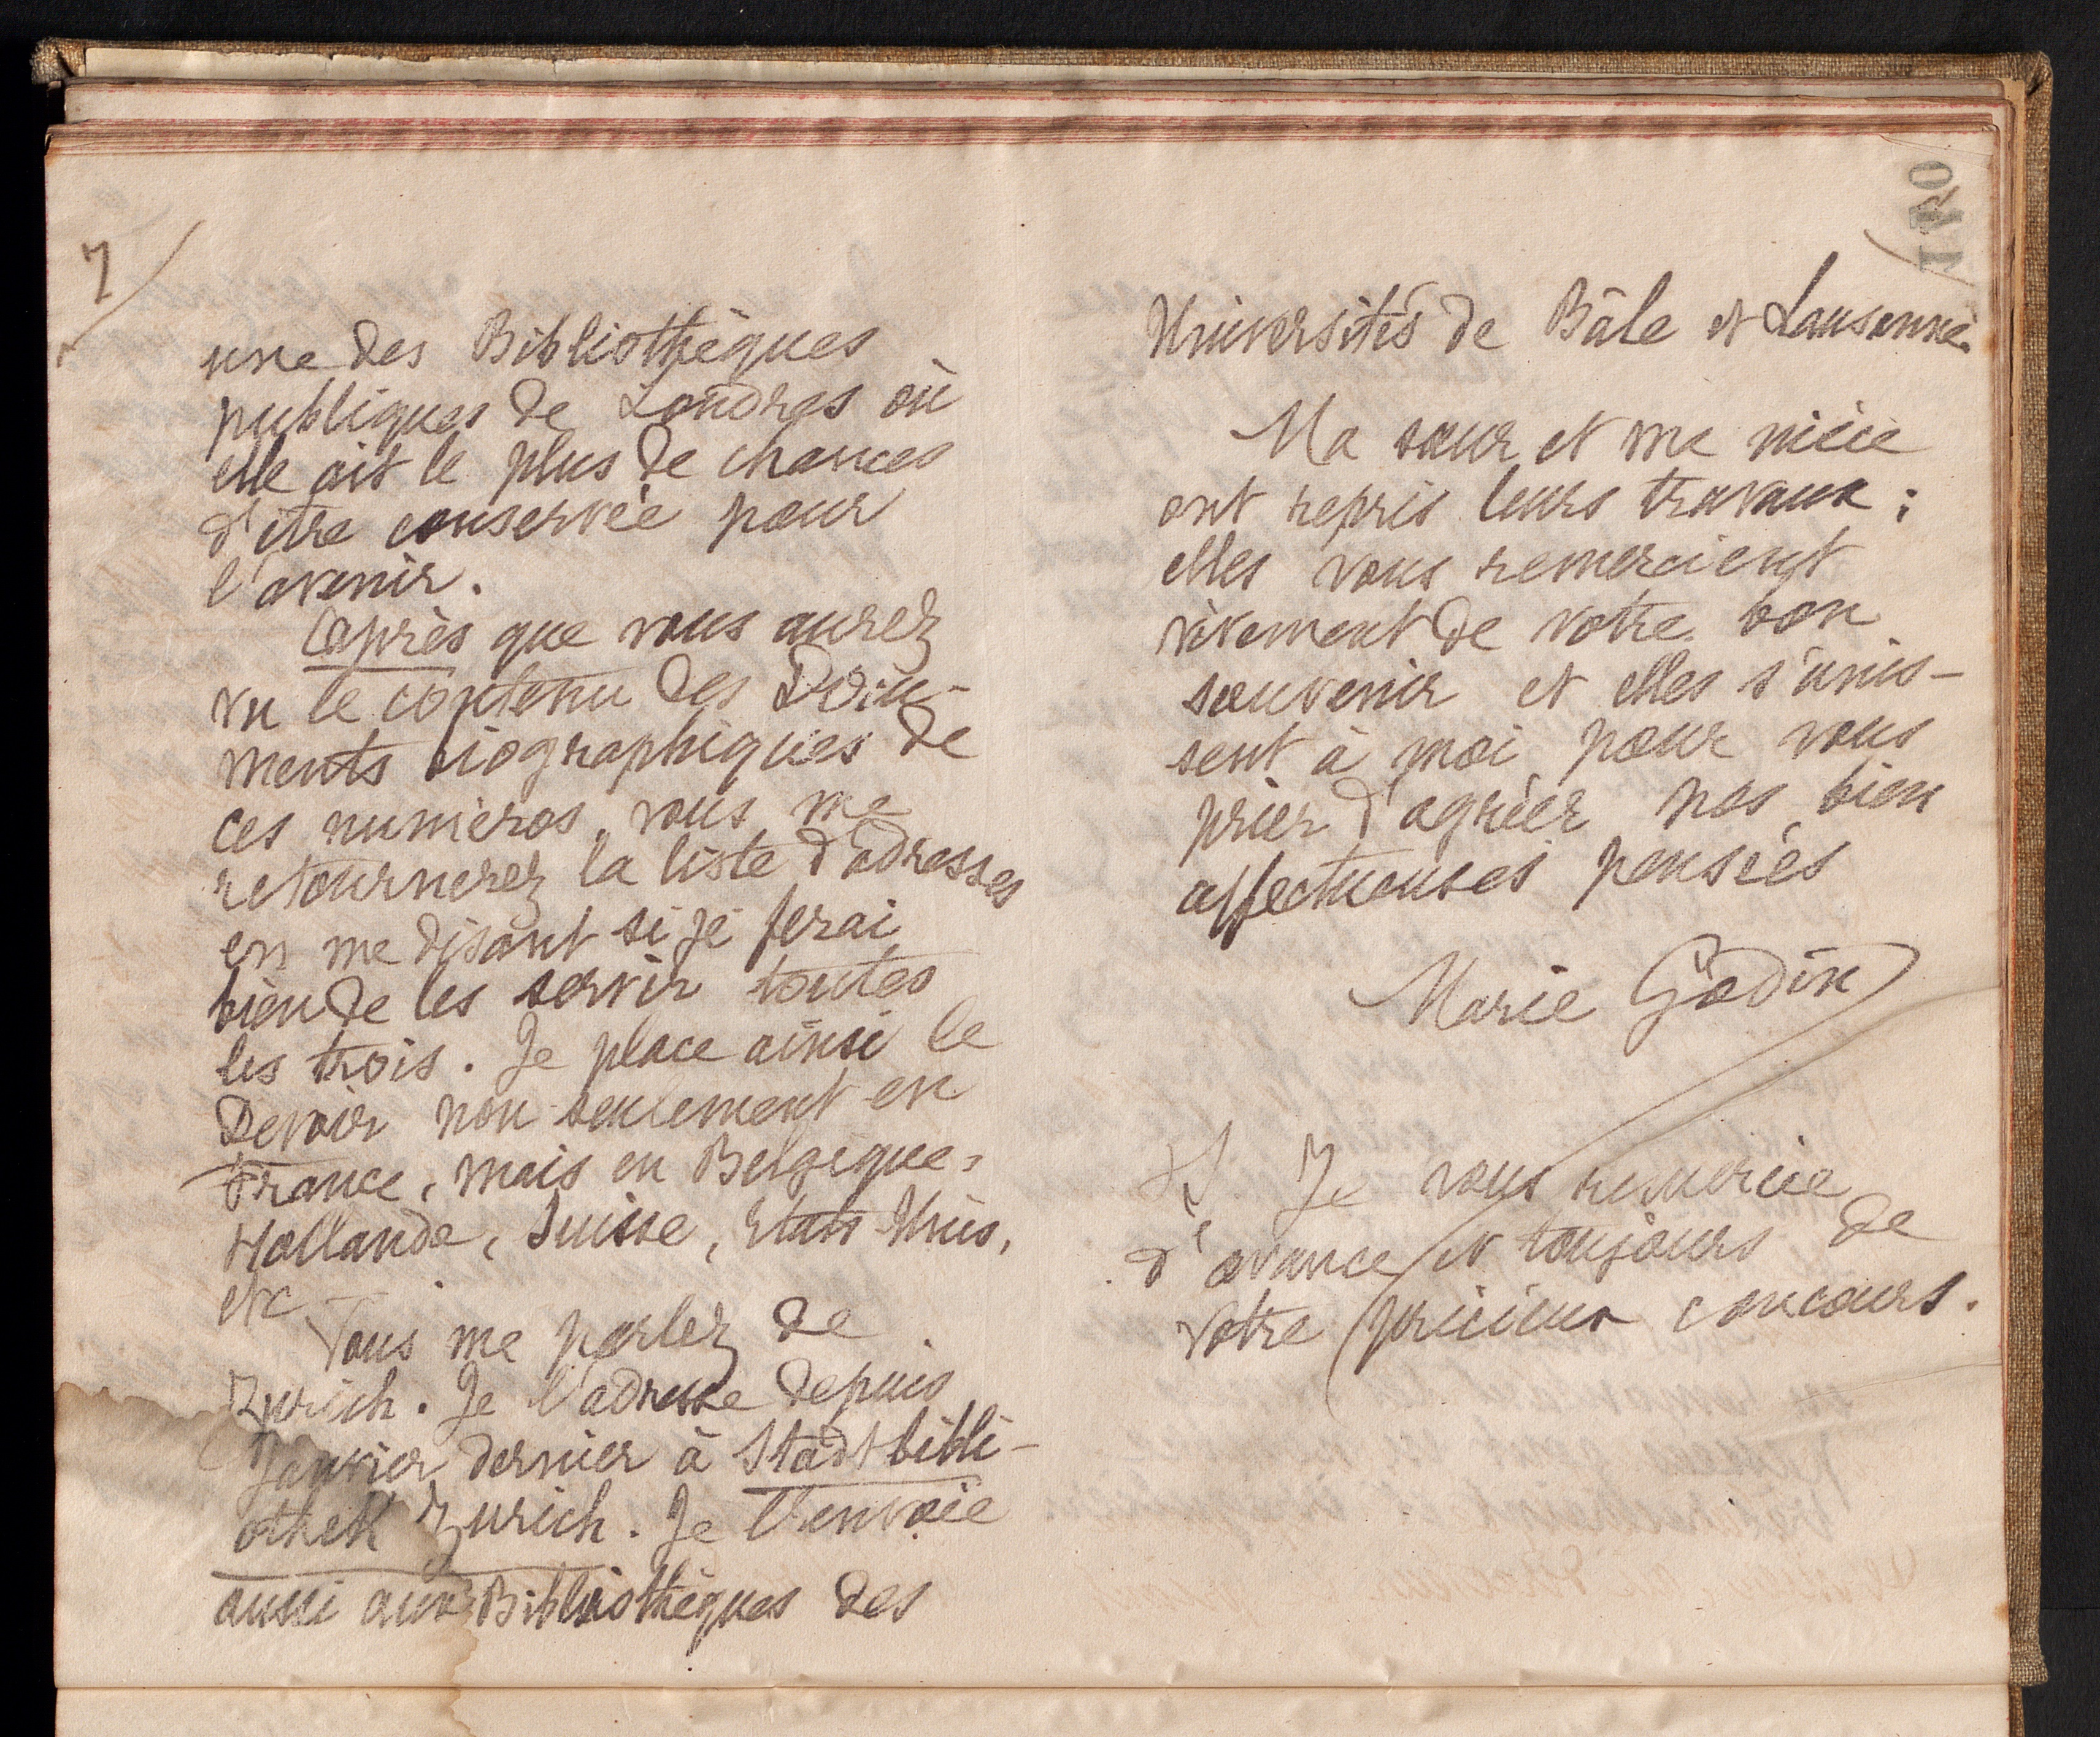 7
une des Bibliothèques
publiques de Londres où
elle ait le plus de chances
d'être conservée pour
l'avenir.
Après que vous aurez
vu le contenu des Docu-
ments biographiques de
ces numéros, vous me
retournerez la liste d'adresses
en me disant si je ferai
bien de les servir toutes
les trois. Je place ainsi le
Devoir non seulement en
France, mais en Belgique,
Hollande, Suisse, Etats-Unis,
etc
Vous me parlez de
Zurich. Je l'adresse depuis
Janvier dernier à Stadtbibli-
othek Zurich. Je l'envoie
aussi aux Bibliothèques des
Universités de Bâle et Lausanne.
Ma sœur et ma nièce
ont repris leurs travaux;
elles vous remercient
vivement de votre bon
souvenir et elles s'unis-
sent à moi pour vous
prier d'agréer nos bien
affectueuses pensées
Marie Godin
Je vous remercie
d'avance et toujours de
votre précieux concours.